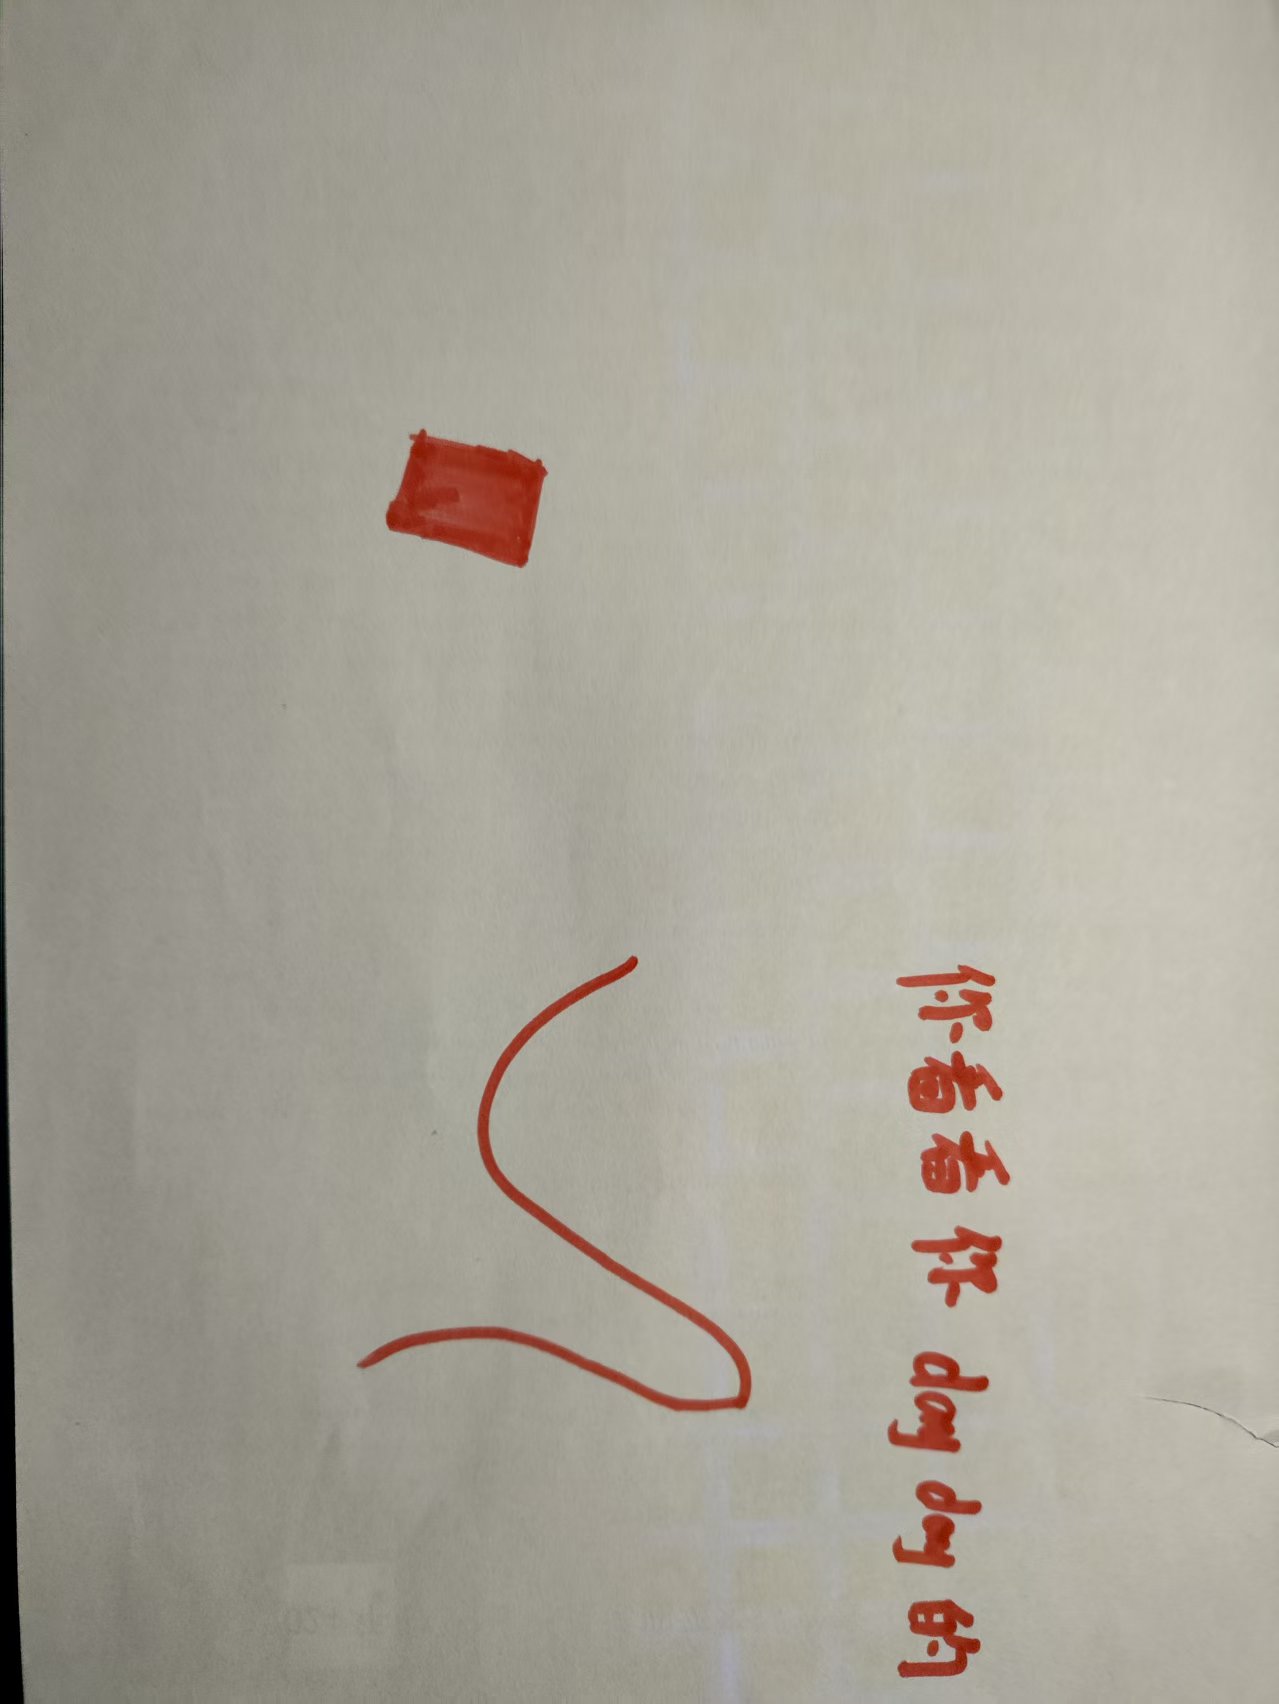 你看看你 day day 的